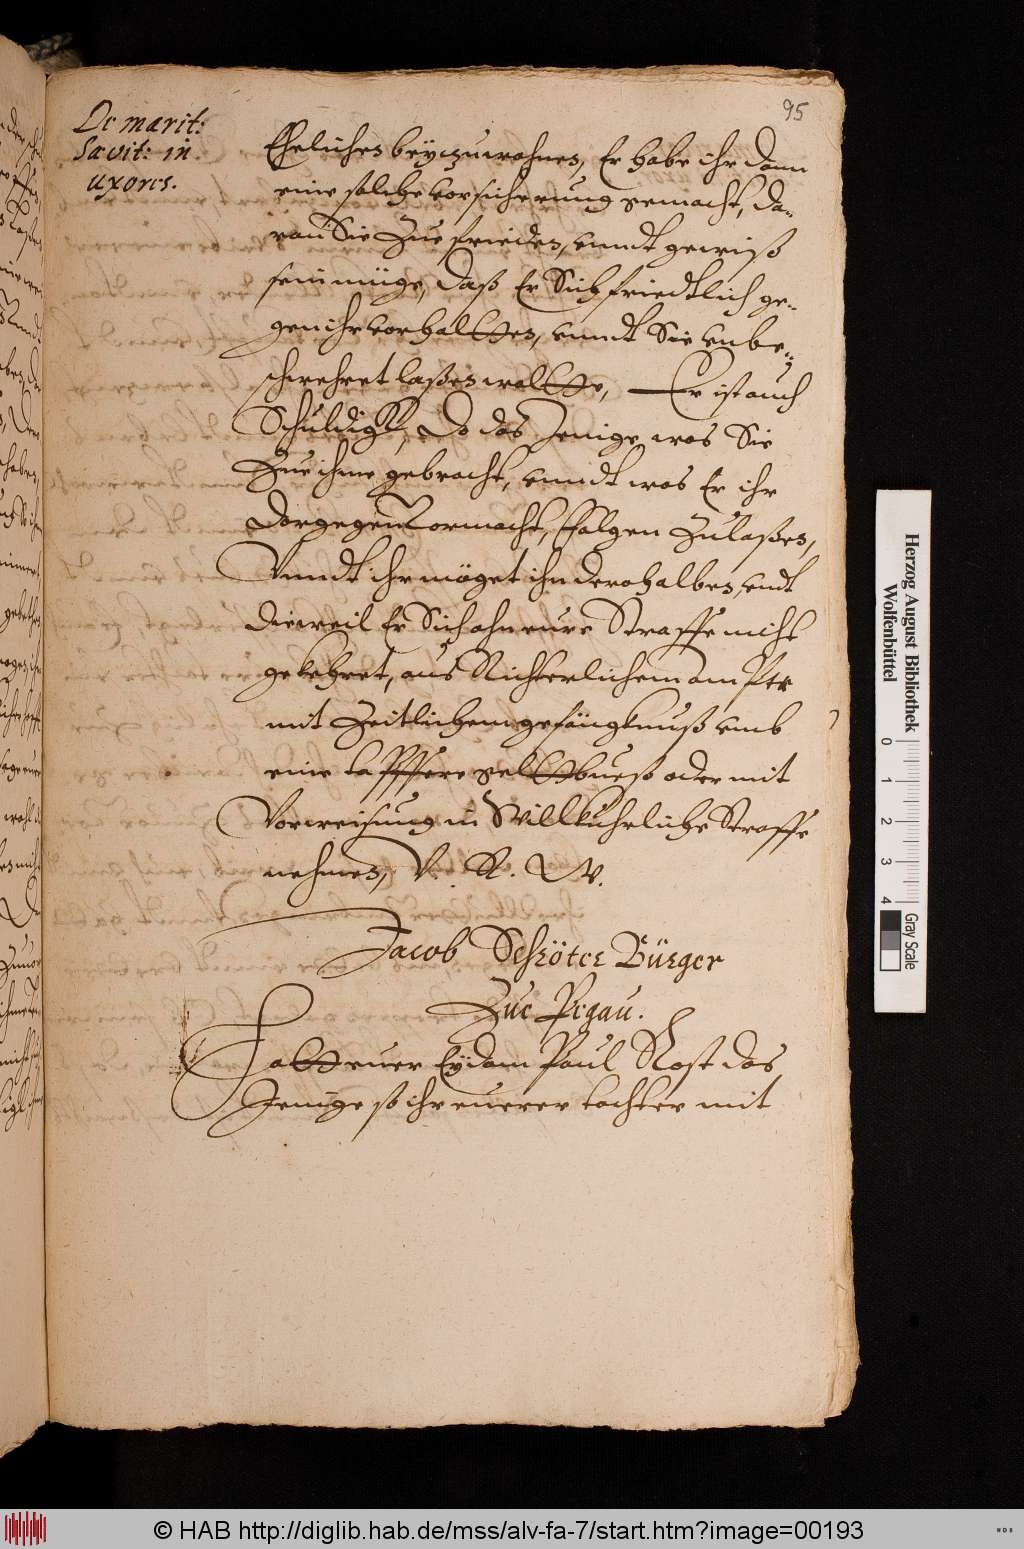 95
De marit:
Sævit: in
uxores.
Ehelichen beyzuwohnen, Er habe ihr dann
eine solche vorsicherung gemacht, da-
ran Sie Zue frieden, vnndt gewiß
sein müge, daß Er Sich friedtlich ge-
gen ihr vorhaltten, vnndt Sie vnbe-
schwehret laßen woltte, Er ist auch
Schuldigk, Do das Jenige was Sie
Zue ihme gebracht, vnndt was Er ihr
dargegen Vormacht, folgen Zulaßen,
Vnndt ihr möget ihn derohalben, vndt
dieweil Er Sich ahn eure Straffe nicht
gekehret, aus Richterlichem ampte
mit Zeitlichem gefängknuß vmb
eine tapffere geltbueß oder mit
Vorweisung in Willkuhrliche Straffe
nehmen, V. R. W.
Jacob Schröter Bürger
Zue Pegau.
Hatt euer Eydam Paul Rost das
Jenige so ihr euerer tochter mit
Herzog August Bibliothek
Wolfenbüttel
0 1 2 3 4
Gray Scale
© HAB http://diglib.hab.de/mss/alv-fa-7/start.htm?image=00193